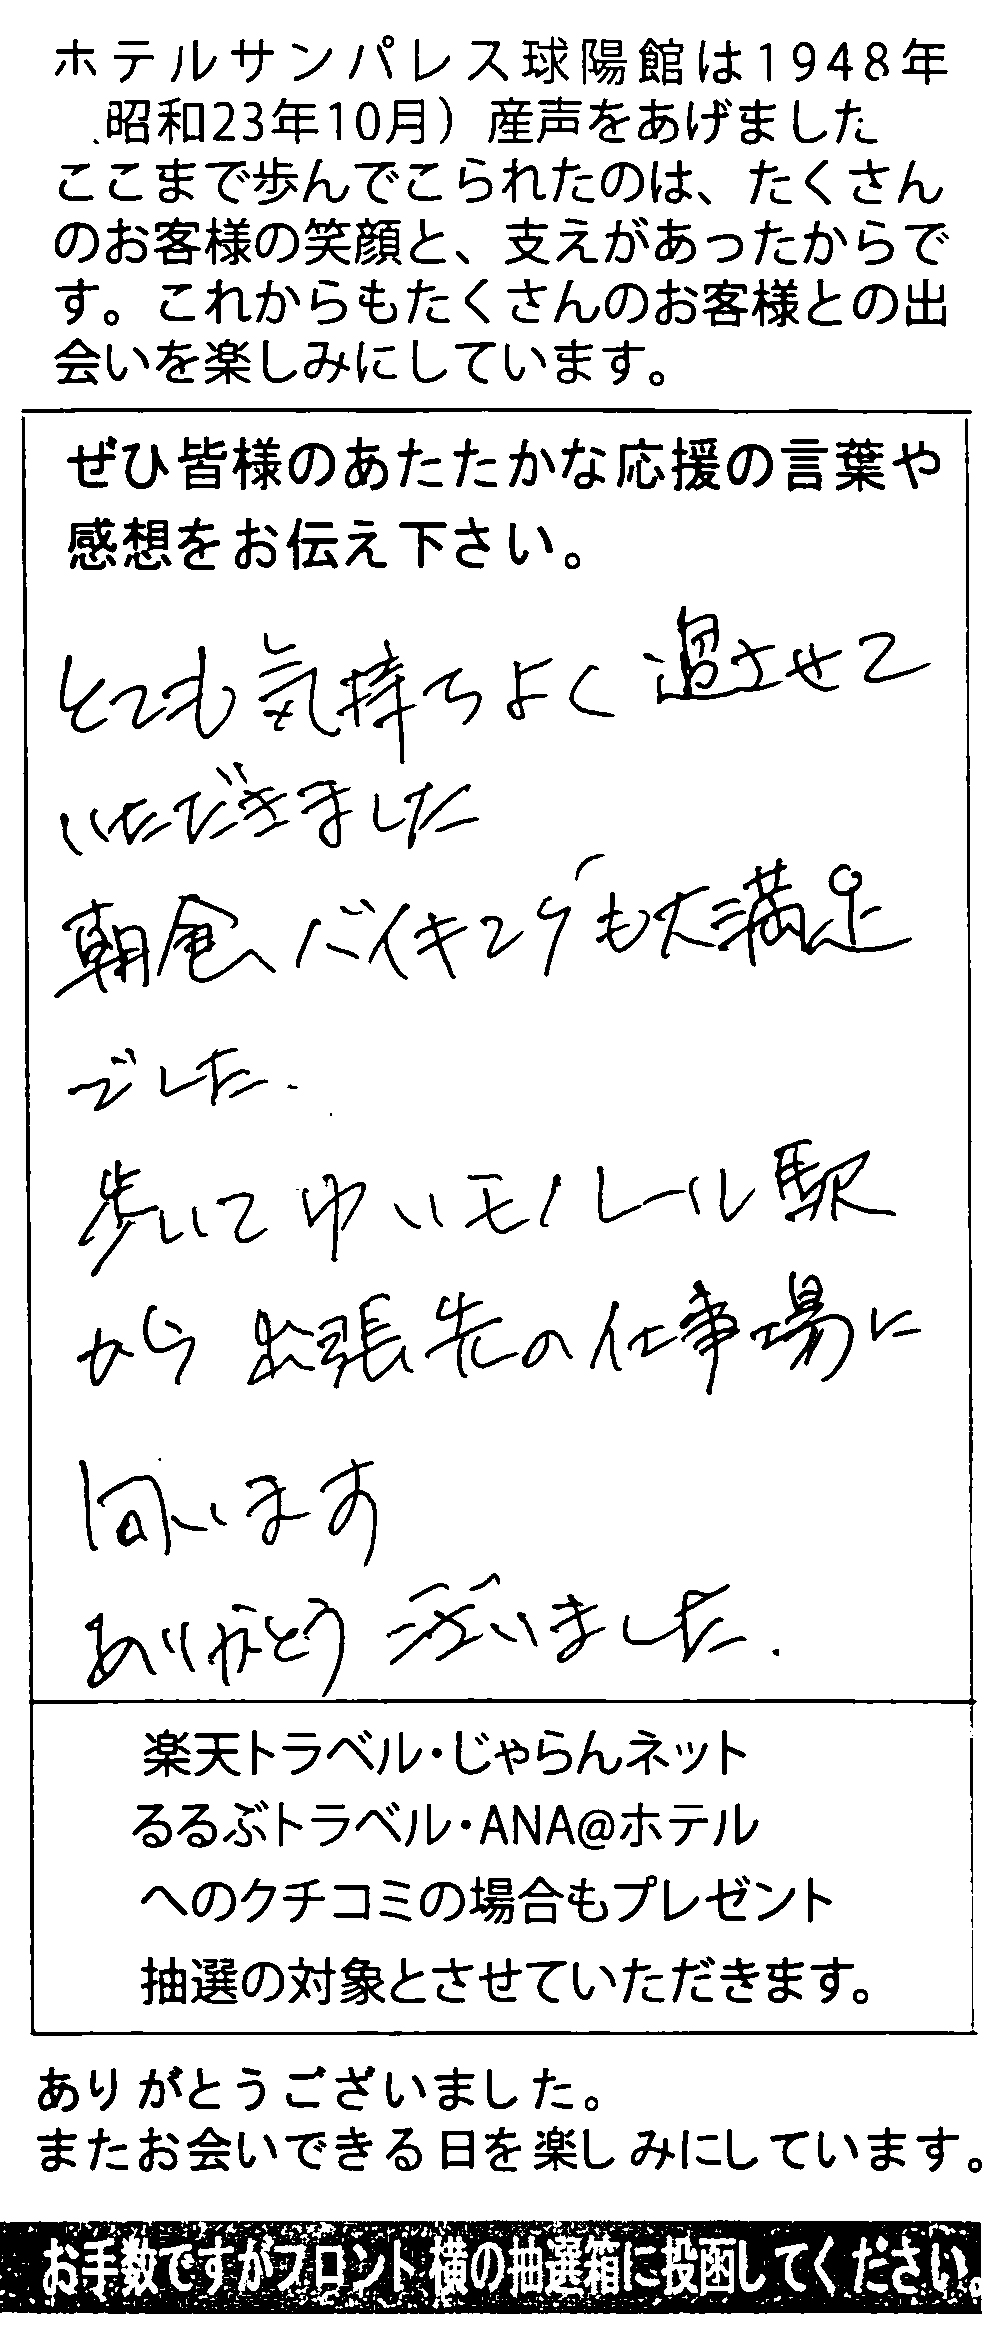 ホテルサンパレス球陽館は1948年
昭和23年10月）産声をあげました
ここまで歩んでこられたのは、たくさん
のお客様の笑顔と、支えがあったからで
す。これからもたくさんのお客様との出
会いを楽しみにしています。
ぜひ皆様のあたたかな応援の言葉や
感想をお伝え下さい。
とても気持ちよく過させて
いただきました
朝食バイキングも大満足
でした.
歩いてゆいモノレール駅
から出張先の仕事場に
向います
ありがとう ございました.
楽天トラベル・じゃらんネット
るるぶトラベル・ANA@ホテル
へのクチコミの場合もプレゼント
抽選の対象とさせていただきます。
ありがとうございました。
またお会いできる日を楽しみにしています。
お手数ですがフロント横の抽選箱に投函してください。